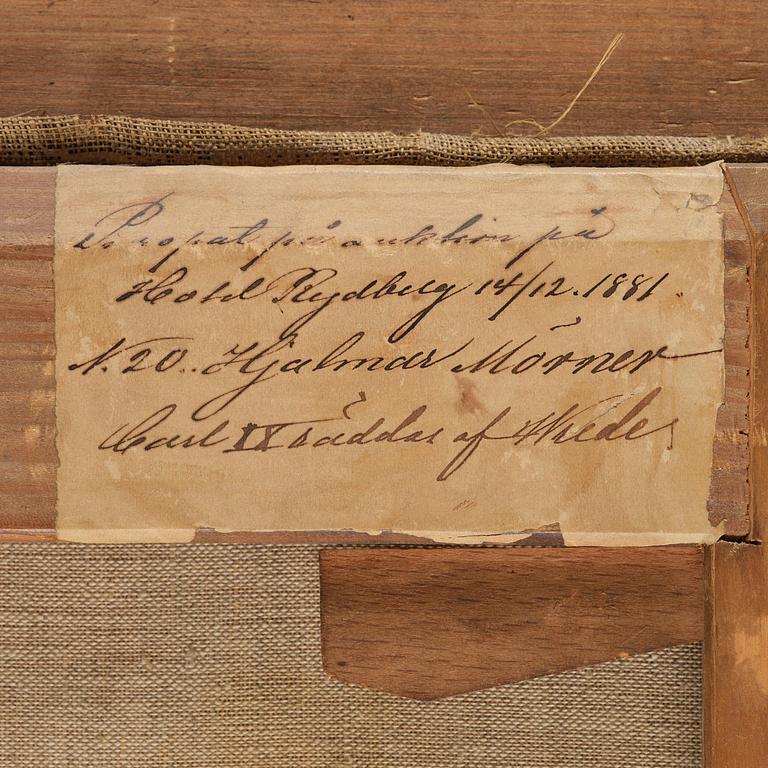 Inropat på auktion på
Hotel Rydberg 14/12.1881.
N. 20. Hjalmar Mörner
Carl IX räddas af Wrede